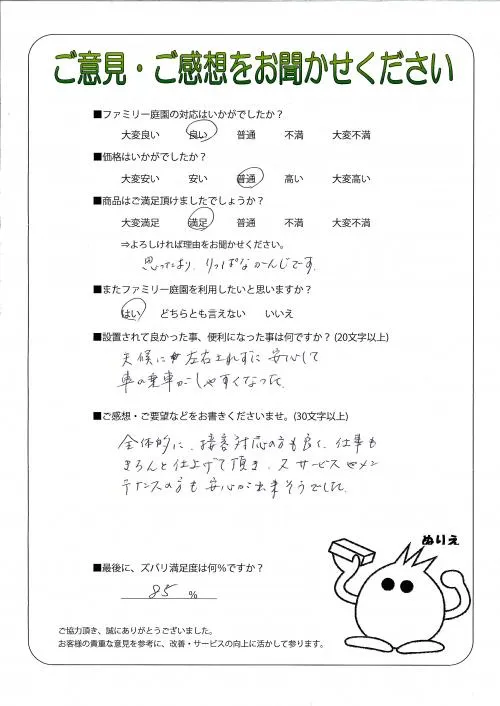 ご意見・ご感想をお聞かせください
■ファミリー庭園の対応はいかがでしたか？
大変良い　良い　普通　不満　大変不満
■価格はいかがでしたか？
大変安い　安い　普通　高い　大変高い
■商品はご満足頂けましたでしょうか？
大変満足　満足　普通　不満　大変不満
⇒よろしければ理由をお聞かせください。
思ったより、りっぱなかんじです。
■またファミリー庭園を利用したいと思いますか？
はい　どちらとも言えない　いいえ
■設置されて良かった事、便利になった事は何ですか？(20文字以上)
天候に左右されずに安心して
車の乗車がしやすくなった。
■ご感想・ご要望などをお書きくださいませ。(30文字以上)
全体的に、接客対応の方も良く、仕事も
きちんと仕上げて頂き、又サービスやメン
テナンスの方も安心が出来そうでした。
ぬりえ
■最後に、ズバリ満足度は何％ですか？
85 %
ご協力頂き、誠にありがとうございました。
お客様の貴重な意見を参考に、改善・サービスの向上に活かして参ります。